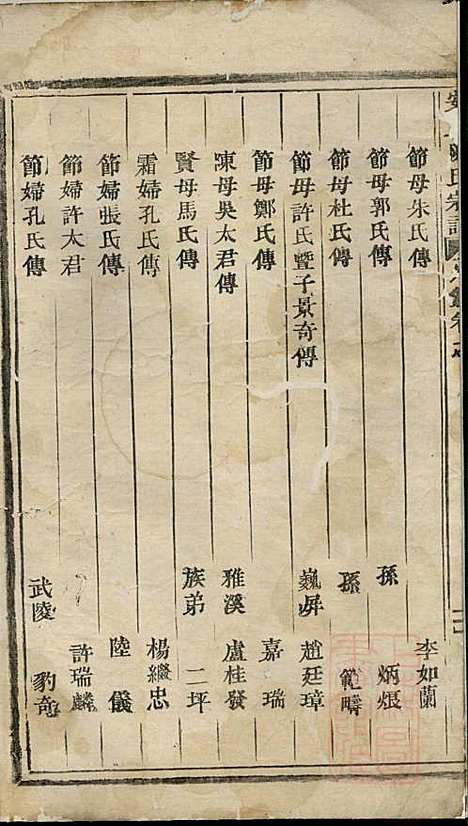 節母朱氏傳 李如蘭
節母郭氏傳 孫 炳烺
節母杜氏傳 孫 範疇
節母許氏暨子景奇傳 巍屏 趙廷璋
節母鄭氏傳 嘉瑞
陳母吳太君傳 雅溪 盧桂發
賢母馬氏傳 族弟 二坪
霜婦孔氏傳 楊繼忠
節婦張氏傳 陸儀
節婦許太君 許瑞麟
節婦孔氏傳 武陵 豹奇
氏宗譜